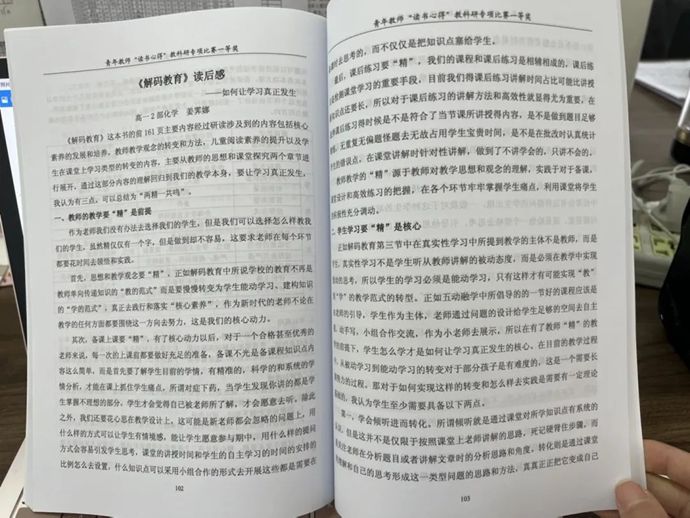 青年教师“读书心得”教科研专项比赛一等奖
《解码教育》读后感
——如何让学习真正发生
高一2部化学 姜霁娜
《解码教育》这本书的前161页主要内容经过研读涉及到的内容包括核心
素养的发展和培养，教师教学观念的转变和方法，儿童阅读素养的提升以及学
生在课堂上学习类型的转变的内容，主要从教师的思想和课堂探究两个章节进
行展开，通过这部分内容的理解回归到我们的教学本身，要让学习真正发生，
我认为有三点，可以总结为“两精一共鸣”。
一、教师的教学要“精”是前提
作为老师我们没有办法去选择我们的学生，但是我们可以选择怎么样教我
们的学生，虽然精仅仅有一个字，但是做到却不容易，这要求老师在每个环节
都要花时间去领悟和实践。
首先，思想和教学观念要“精”，正如解码教育中所说学校的教育不再是
教师单向传递知识的“教的范式”而是要慢慢转变为学生能动学习、建构知识
的“学的范式”，真正去践行和落实“核心素养”，作为新时代的老师不论在
教学的任何方面都要围绕这一方向去努力，这是我们的核心动力。
其次，备课上课要“精”，有了核心动力以后，对于一个合格甚至优秀的
老师来说，每一次的上课前都要做好充足的准备，备课不光是备课程知识点内
容这么简单，而是首先要了解学生目前的学情，有精准的，科学的和系统的学
情分析，才能在课上抓住学生痛点，所谓对症下药，当学生发现你讲的都是学
生掌握不理想的部分，学生才会觉得自己被老师所了解，才会愿意去听。除此
之外，我们还要花心思在教学设计上，这可能是新老师都会忽略的问题上，用
什么样的方式可以让学生有情境感，能让学生愿意参与期中，用什么样的提问
方式会容易引发学生思考，课堂的讲授时间和学生的自主学习的时间的安排的
比例怎么去设置，什么知识点可以采用小组合作的形式去开展这些都是需要在
102
青年教师“读书心得”教科研专项比赛一等奖
备课时去思考的，而不仅仅是把知识点塞给学生。
最后，课后练习要“精”，我们的课程和课后练习是相辅相成的，课后练
是检测课堂学习的重要手段，目前我们得课后练习讲解时间占比可能比讲授
知识点还要长，所以对于课后练习的讲解方法和高效性就显得尤为重要，在
课后练习得时候是不是符合了当节课所讲授得内容，是不是做到题目足够
，无重复无偏题怪题去无故占用学生宝贵时间，是不是在批改时认真统计
学生的错误点，在课堂讲解时针对性讲解，做到了不讲学会的，只讲不会的。
教师教学的“精”源于教师对教学思想和观念的理解，实践于对于备课，
设计和高效练习的把握，在各个环节牢牢掌握学生痛点，利用课堂将学生
积极性充分调动。
二、学生学习要“精”是核心
正如解码教育第三节中在真实性学习中所提到教学的主体不是教师，而是
，真实性学习不是学生听从教师讲解的被动态度，而是必须在教学中实现
的思考，所以学生的学习必须是能动学习，只有这样才有可能实现“教”
“学”的教学范式的转型。正如五动融学中所倡导的的一节好的课程应该是
老师的引导，学生作为主体，老师通过问题的设计给学生足够的空间去自主
，动手写，小组合作交流，作为小老师去展示，所以在有了教师“精”的教
的前提下，学生怎么学才是如何让学习真正发生的核心，在目前的教学过程
，从被动学习到能动学习的转变对于部分孩子是有难度的，这是一个需要长
努力的过程。那对于如何实现这样的转变和怎么样去实践是需要有一定理论
的，我认为学生至少需要具备以下两点。
第一，学会倾听进而转化，所谓倾听就是通过课堂对所学知识点有系统的
认识，但是这并不是仅限于按照课堂上老师讲解的思路，死记硬背住步骤，而
关注老师在分析题目或者讲解文章时的分析思路和角度，转化则是通过课堂
理解和自己的思考形成这一类型问题的思路和方法，真真正正把它变成自己
103